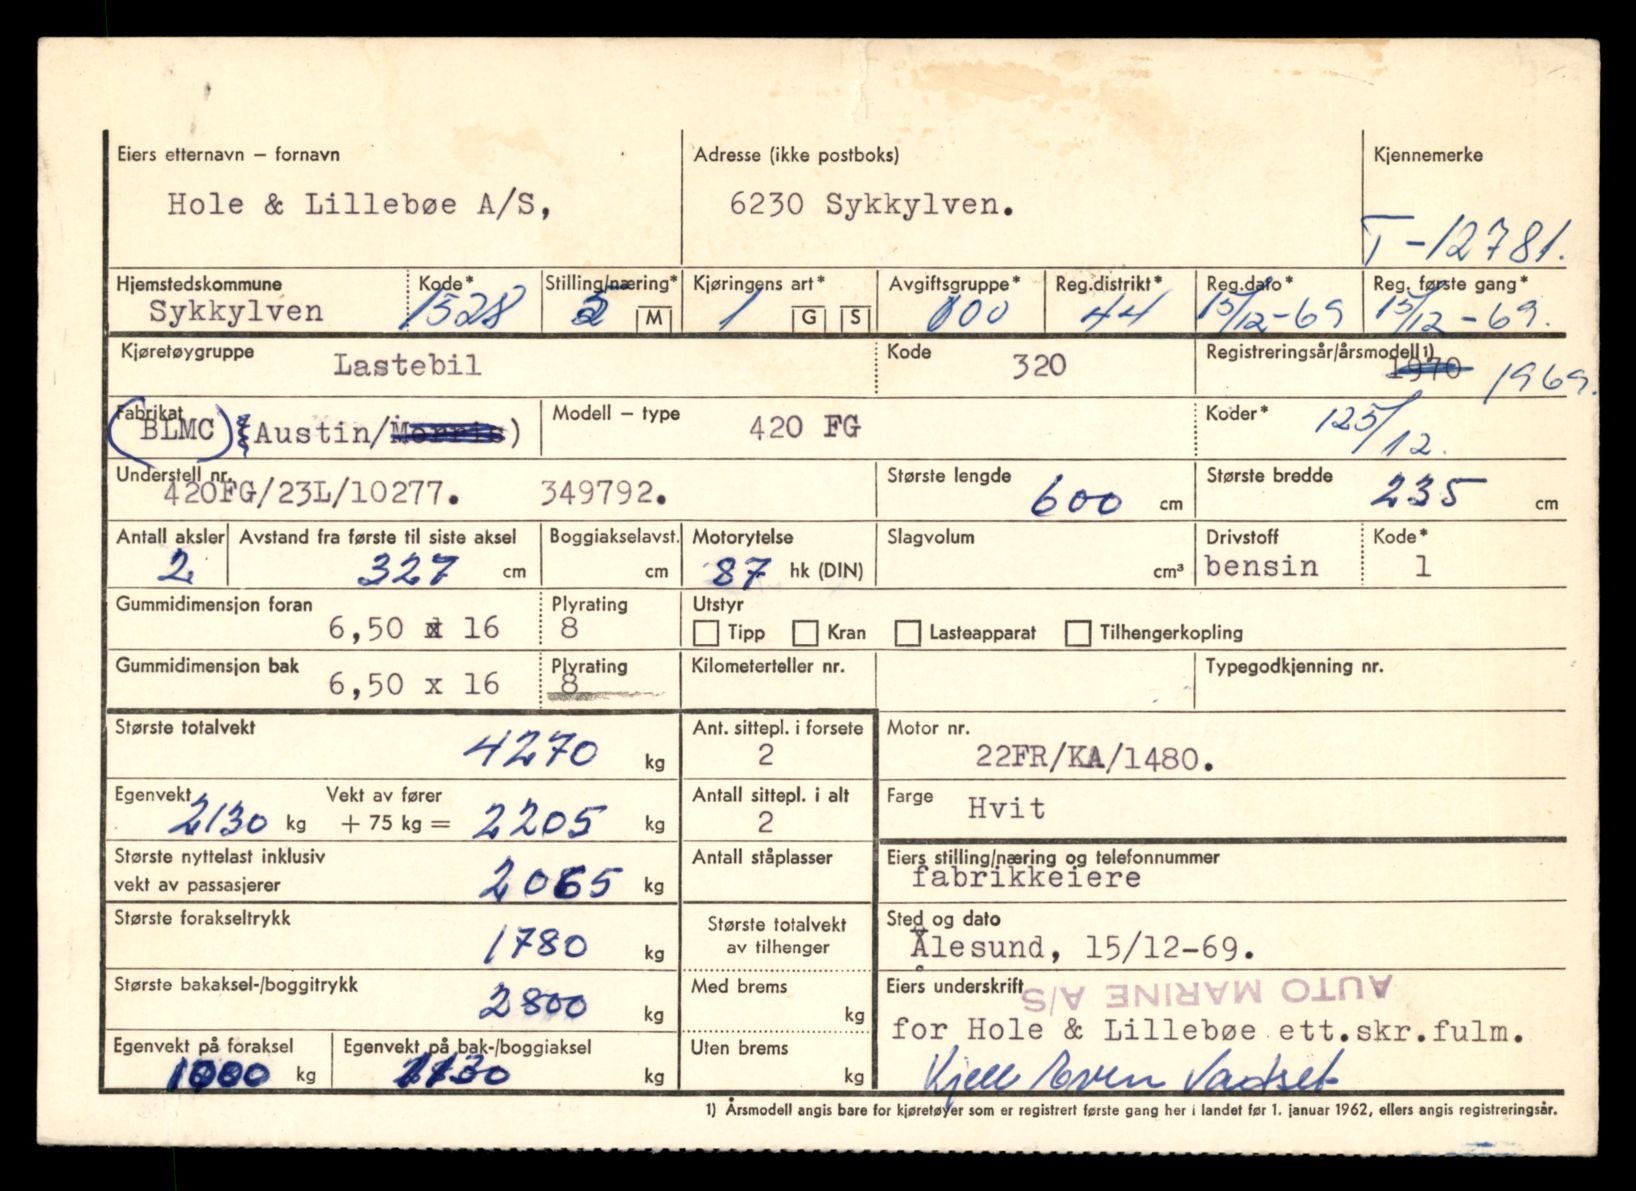 Eiers etternavn – fornavn
Adresse (ikke postboks)
Kjennemerke
Hole & Lillebøe A/S,
6230 Sykkylven.
T-12781.
Hjemstedskommune
Kode*
Stilling/næring*
Kjøringens art*
Avgiftsgruppe*
Reg.distrikt*
Reg.dato*
Reg. første gang*
Sykkylven
1528
5
M
1
G
S
100
44
15/12-69
15/12-69.
Kjøretøygruppe
Lastebil
Kode
320
Registreringsår/årsmodell1)
1970
1969.
Fabrikat
(BLMC) (Austin/Morris)
Modell – type
420 FG
Koder*
125/12.
Understell nr.
420FG/23L/10277. 349792.
Største lengde
600 cm
Største bredde
235 cm
Antall aksler
2
Avstand fra første til siste aksel
327 cm
Boggiakselavst.
cm
Motorytelse
87 hk (DIN)
Slagvolum
cm³
Drivstoff
bensin
Kode*
1
Gummidimensjon foran
6,50 x 16
Plyrating
8
Utstyr
Tipp
Kran
Lasteapparat
Tilhengerkopling
Gummidimensjon bak
6,50 x 16
Plyrating
8
Kilometerteller nr.
Typegodkjenning nr.
Største totalvekt
4270 kg
Ant. sittepl. i forsete
2
Motor nr.
22FR/KA/1480.
Egenvekt
2130 kg
Vekt av fører
+ 75 kg = 2205 kg
Antall sittepl. i alt
2
Farge
Hvit
Største nyttelast inklusiv
vekt av passasjerer
2065 kg
Antall ståplasser
Eiers stilling/næring og telefonnummer
fabrikkeiere
Største forakseltrykk
1780 kg
Største totalvekt
av tilhenger
Sted og dato
Ålesund, 15/12-69.
Største bakaksel-/boggitrykk
2800 kg
Med brems
kg
Eiers underskrift
AUTO MARINE A/S
for Hole & Lillebøe ett.skr.fulm.
Egenvekt på foraksel
1000 kg
Egenvekt på bak-/boggiaksel
1130 kg
Uten brems
kg
Kjell Even Vadset
1) Årsmodell angis bare for kjøretøyer som er registrert første gang her i landet før 1. januar 1962, ellers angis registreringsår.